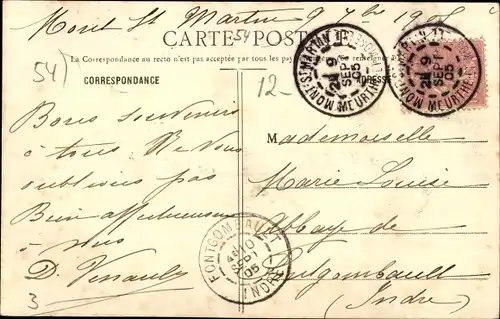 Mont St Martin 9 7bre 1905
CARTE POSTALE
54
La Correspondance au recto n'est pas acceptée par tous les pays
54
CORRESPONDANCE
ADRESSE
12-
MONT-ST-MARTIN
MEURTHE
9
SEPT
05
MEURTHE
9
SEPT
05
Bons souvenirs
à tous Ne vous
oublions pas
Bien affectueusement
à vous
D.
3
Mademoiselle
Marie Louise
Abbaye de
Fontgombault
(Indre)
FONTGOMBAULT
10
SEPT
05
INDRE